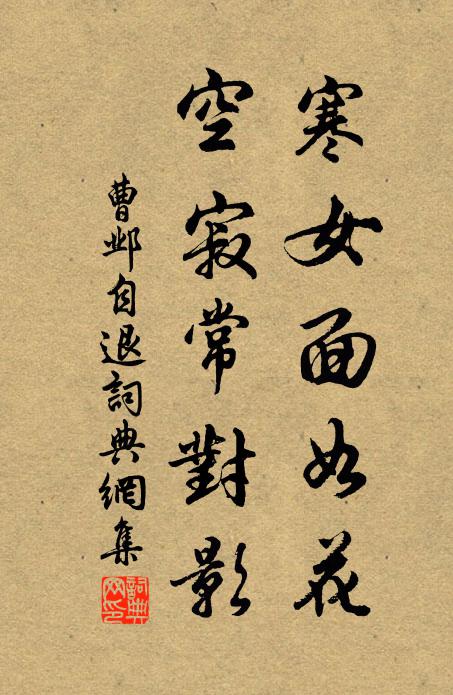 寒女面如花
空寂常對影
曹邺自退詞典網集
詞典
网印